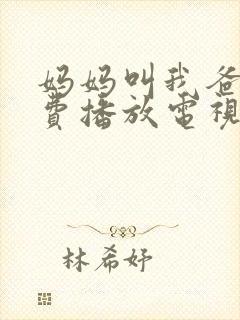 妈妈叫我爸
費播放電視
林希妤